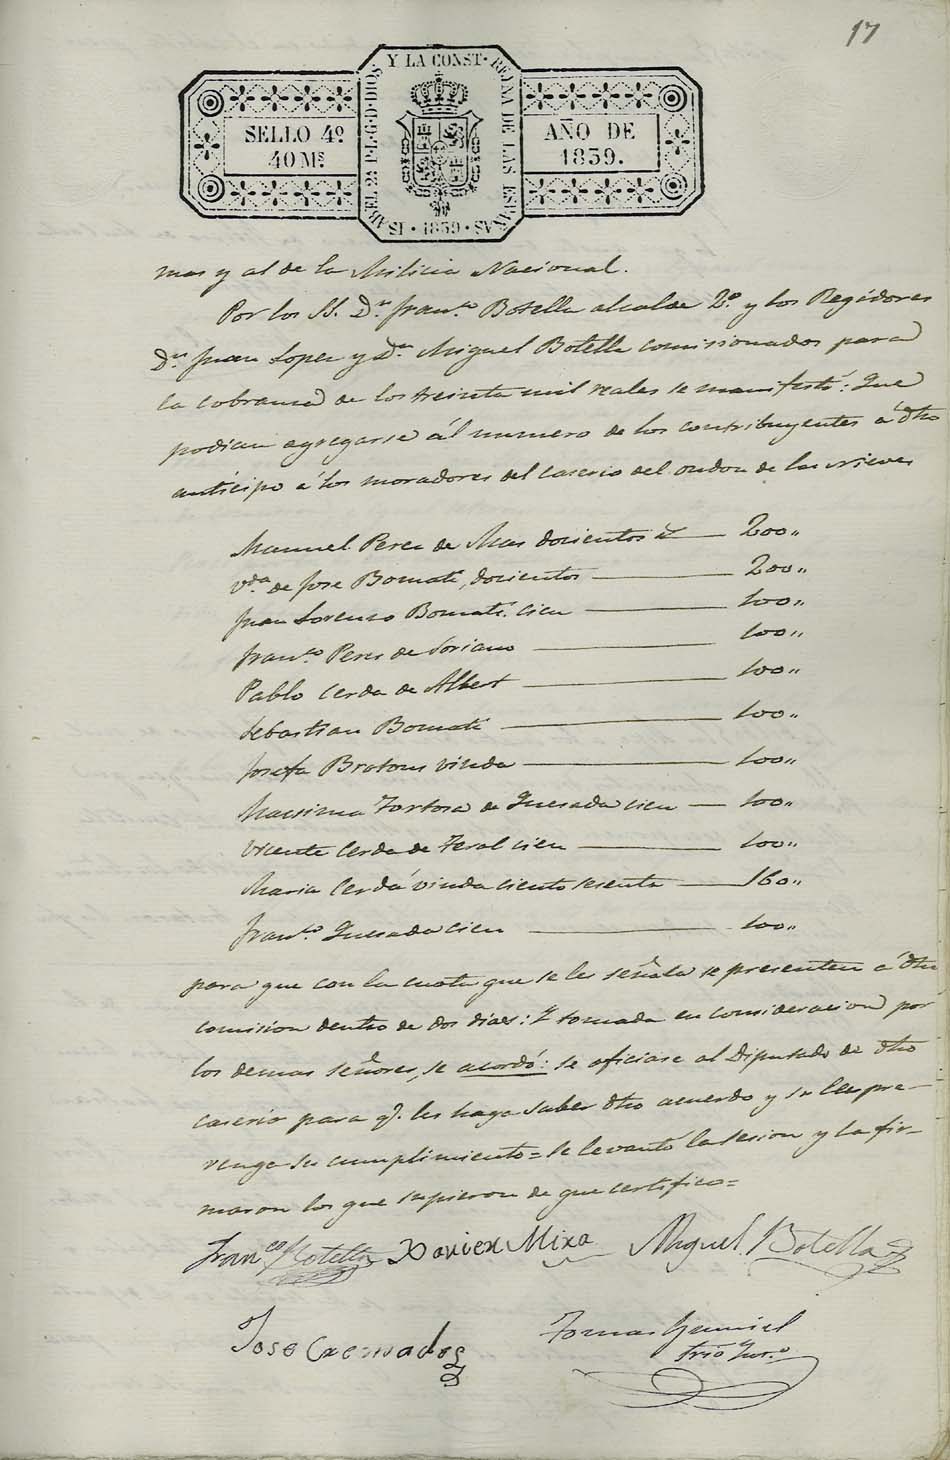 17
SELLO 4º
40 Mˢ
ISABEL 2ª P. L. G. D. DIOS Y LA CONST. REYNA DE LAS ESPAÑAS
1839
AÑO DE
1839.
mas y al de la Milicia Nacional.
Por los SS. Dⁿ. Franᶜᵒ. Botella alcalde 2º. y los Regidores
Dⁿ. Juan Lopez y Dⁿ. Miguel Botella comisionados para
la cobranza de los treinta mil reales se manifestó: Que
podian agregarse ál numero de los contribuyentes á dho
anticipo á los moradores del caserio del ondon de las Nieves
Manuel Perez de Mas docientos 200"
Vᵈᵃ de Jose Bomati, docientos 200"
Juan Lorenzo Bomati. cien 100"
Franᶜᵒ Peres de Soriano 100"
Pablo Cerda de Albert 100"
Sebastian Bomati 100"
Josefa Brotons viuda 100"
Maxima Tortosa de Quesada cien 100"
Vicente Cerda de Terol cien 100"
Maria Cerdá viuda ciento sesenta 160"
Franᶜᵒ. Quesada cien 100"
para que con la cuota que se les señala se presenten á dha
comision dentro de dos dias: Y tomada en consideracion por
los demas señores, se acordó: se oficiase al Diputado de dho
caserio para q. les haga saber dho acuerdo y se les pre-
venga su cumplimiento = Se levantó la sesion y la fir-
maron los que supieron de que certifico =
Franᶜᵒ Botella Xavier Mira Miguel Botella
Jose Cremades Tomas
Srio